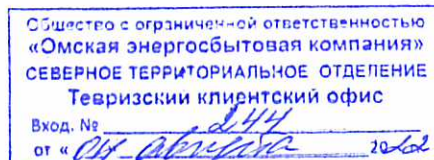 Общество с ограниченной ответственностью
«Омская энергосбытовая компания»
СЕВЕРНОЕ ТЕРРИТОРИАЛЬНОЕ ОТДЕЛЕНИЕ
Тевризский клиентский офис
Вход. № 244
от « 04 августа 2022